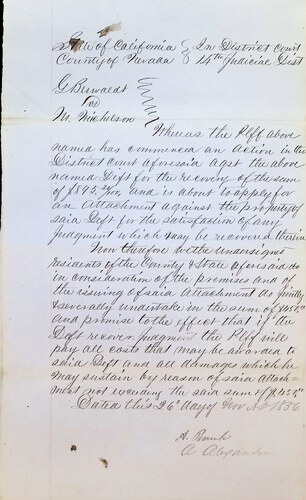 State of California } In District court
County of Nevada } 14th Judicial Dist
G Berwaldt
vs
M. Michelson
Whereas the Plff above
named has commenced an Action in the
District court aforesaid agst the above
named Deft for the recovery of the sum
of and is about to apply for
an Attachment against the property of
said Deft for the satisfaction of any
judgment which may be recovered therein
Now therefore we the undersigned
residents of the County & State aforesaid in
consideration of the premises and of
the issuing of said Attachment do jointly
& severally undertake in the sum of
and promise to the effect that if the
Deft recover judgment the Plff will
pay all costs that may be awarded to
said Deft and all damages which he
may sustain by reason of said attach-
ment not exceeding the said sum of
Dated this 26 day of Nov AD 1856
A.
A Alexander